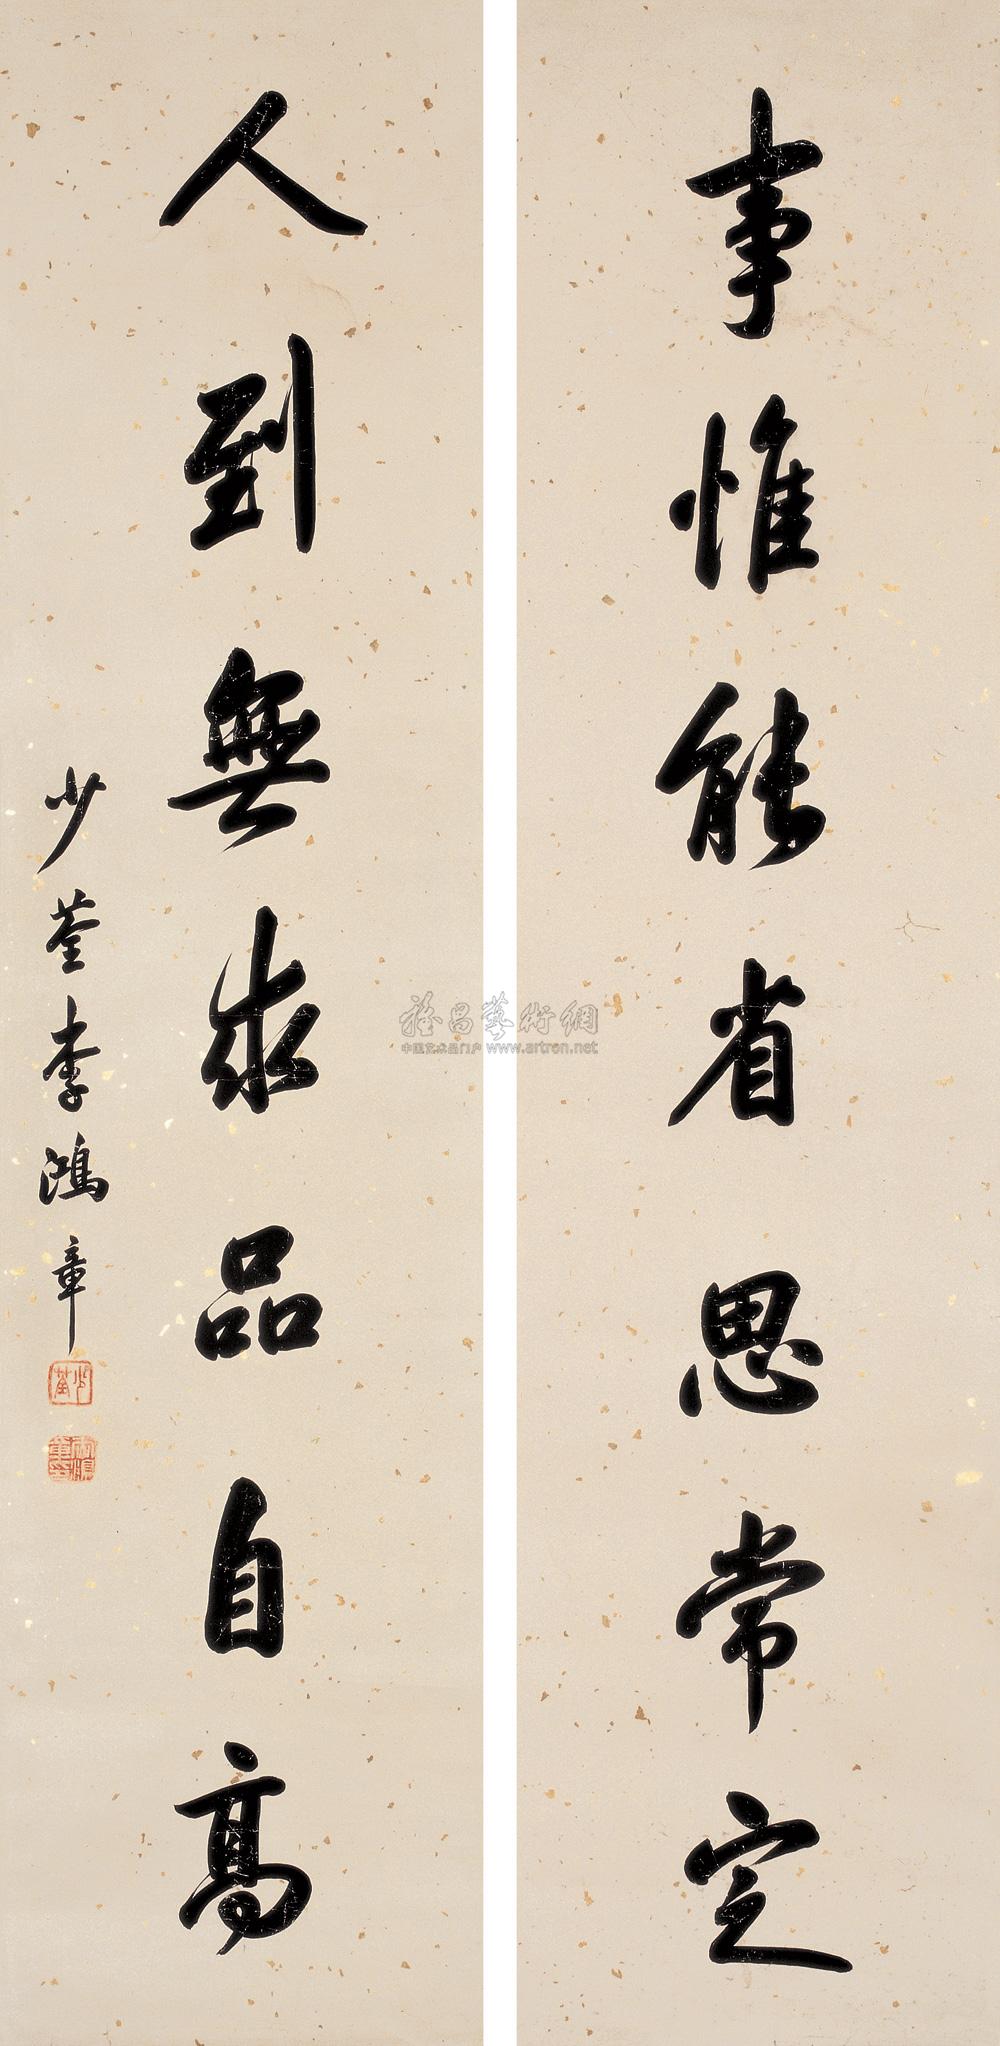 事惟能省思常定
人到無求品自高
少荃李鴻章
少荃
雅昌藝術網
中国艺术品门户 www.artron.net